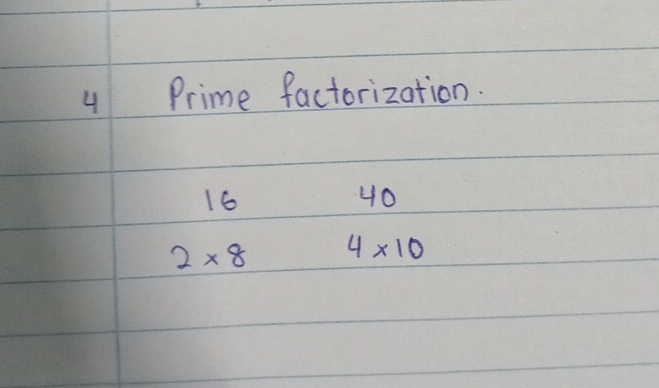 4 Prime factorization.
16 40
2 × 8 4 × 10